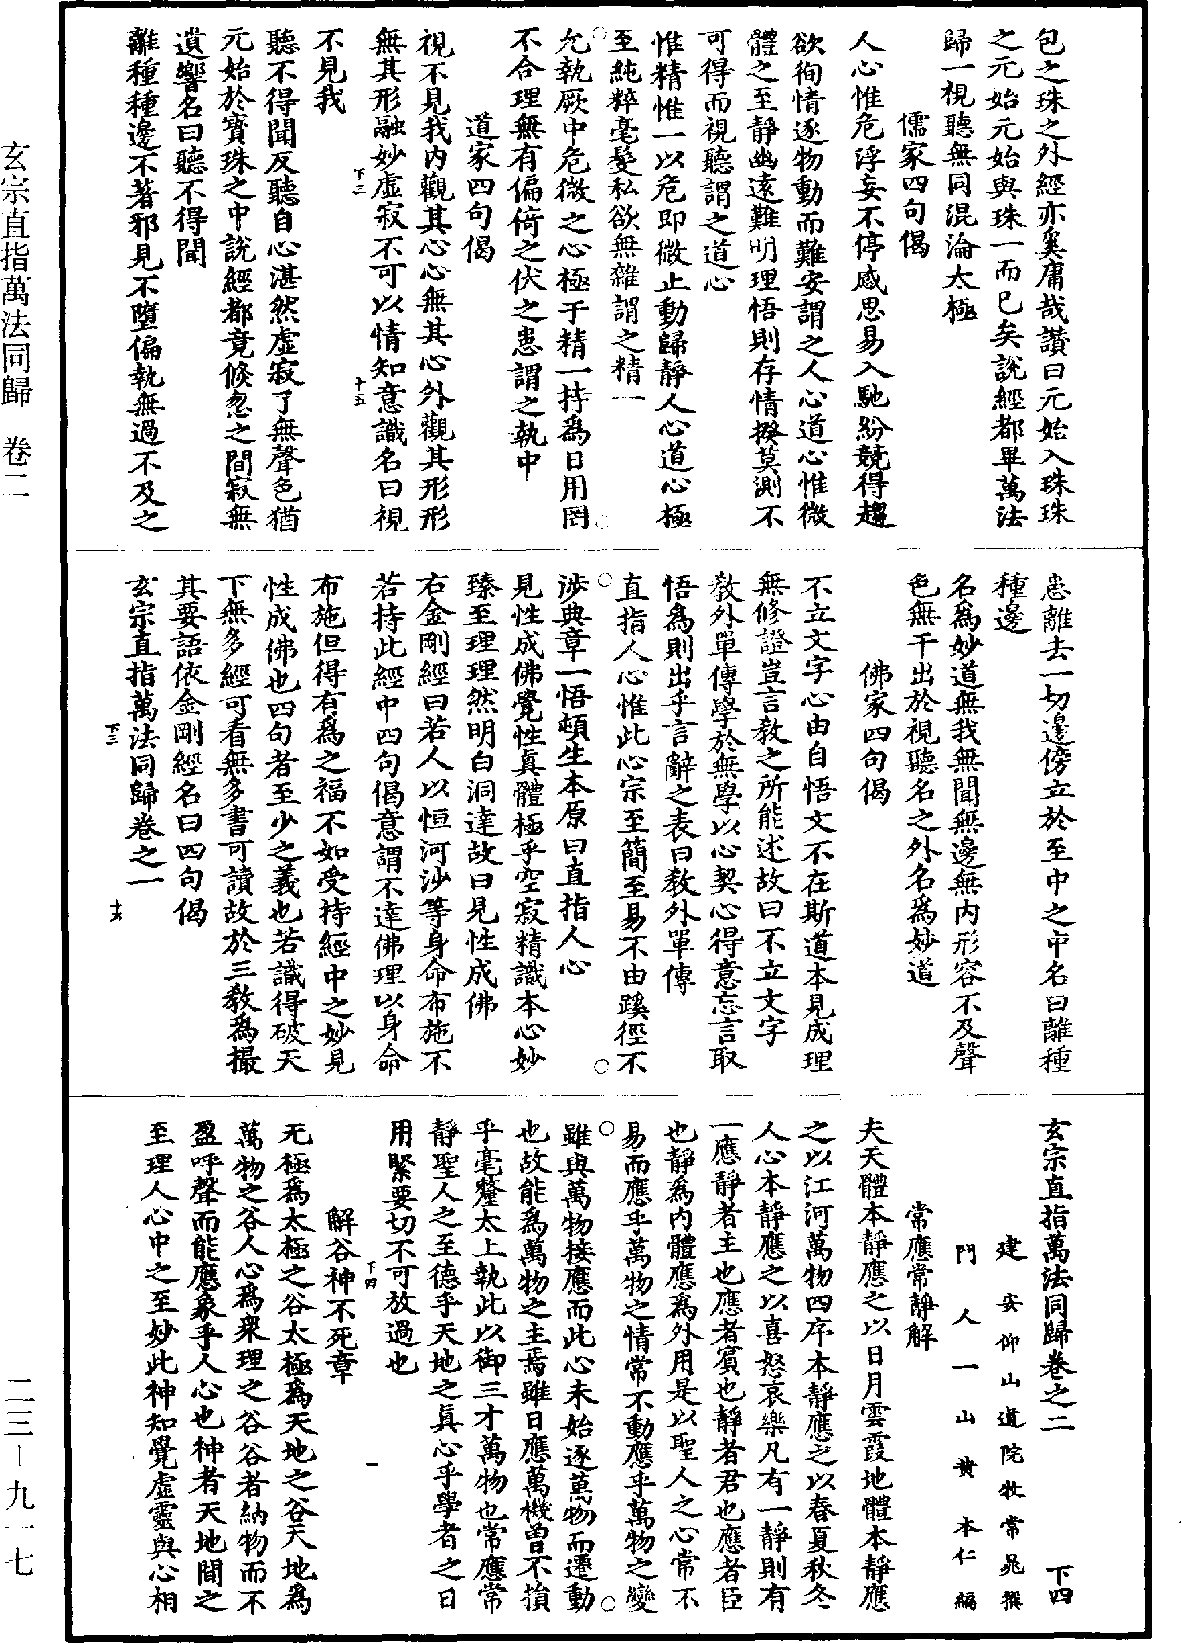 包之珠之外經亦奚庸哉讚曰元始入珠珠
之元始元始與珠一而已矣說經都畢萬法
歸一視聽無同混淪太極
儒家四句偈
人心惟危浮妄不停感思易入馳紛競得趨
欲徇情逐物動而難安謂之人心道心惟微
體之至靜幽遠難明理悟則存情揆莫測不
可得而視聽謂之道心
惟精惟一以危即微止動歸靜人心道心極
至純粹毫髮私欲無雜謂之精一
允執厥中危微之心極于精一持為日用罔
不合理無有偏倚之伏之患謂之執中
道家四句偈
視不見我內觀其心心無其心外觀其形形
無其形融妙虛寂不可以情知意識名曰視
下二
十五
不見我
聽不得聞反聽自心湛然虛寂了無聲色猶
元始於寶珠之中說經都竟倏忽之間寂無
遺響名曰聽不得聞
離種種邊不著邪見不墮偏執無過不及之
患離去一切邊傍立於至中之中名曰離種
種邊
名為妙道無我無聞無邊無內形容不及聲
色無干出於視聽名之外名為妙道
佛家四句偈
不立文字心由自悟文不在斯道本見成理
無修證豈言教之所能述故曰不立文字
教外單傳學於無學以心契心得意忘言取
悟為則出乎言辭之表曰教外單傳
直指人心惟此心宗至簡至易不由蹊徑不
涉典章一悟頓生本原曰直指人心
見性成佛覺性真體極乎空寂精識本心妙
臻至理理然明白洞達故曰見性成佛
右金剛經曰若人以恒河沙等身命布施不
若持此經中四句偈意謂不達佛理以身命
布施但得有為之福不如受持經中之妙見
性成佛也四句者至少之義也若識得破天
下無多經可看無多書可讀故於三教為撮
其要語依金剛經名曰四句偈
玄宗直指萬法同歸卷之一
下三
十六
玄宗直指萬法同歸卷之二
下四
建安仰山道院牧常晁撰
門人一山黃本仁編
常應常靜解
夫天體本靜應之以日月雲霞地體本靜應
之以江河萬物四序本靜應之以春夏秋冬
人心本靜應之以喜怒哀樂凡有一靜則有
一應靜者主也應者賓也靜者君也應者臣
也靜為內體應為外用是以聖人之心常不
易而應乎萬物之情常不動應乎萬物之變
雖與萬物接應而此心未始逐萬物而遷動
也故能為萬物之主焉雖日應萬機曾不損
乎毫釐太上執此以御三才萬物也常應常
靜聖人之至德乎天地之真心乎學者之日
用緊要切不可放過也
下四
一
解谷神不死章
无極為太極之谷太極為天地之谷天地為
萬物之谷人心為衆理之谷谷者納物而不
盈呼聲而能應象乎人心也神者天地間之
至理人心中之至妙此神知覺虛靈與心相
玄宗直指萬法同歸 卷二
二三—九一七